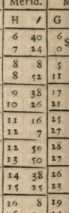 Merid.
H / G
6 40 6
7 24 0
8 8 5
8 52 11
9 38 17
10 26 21
11 16 25
11 7 27
12 50 28
13 50 27
14 38 26
15 25 22
16 8 19